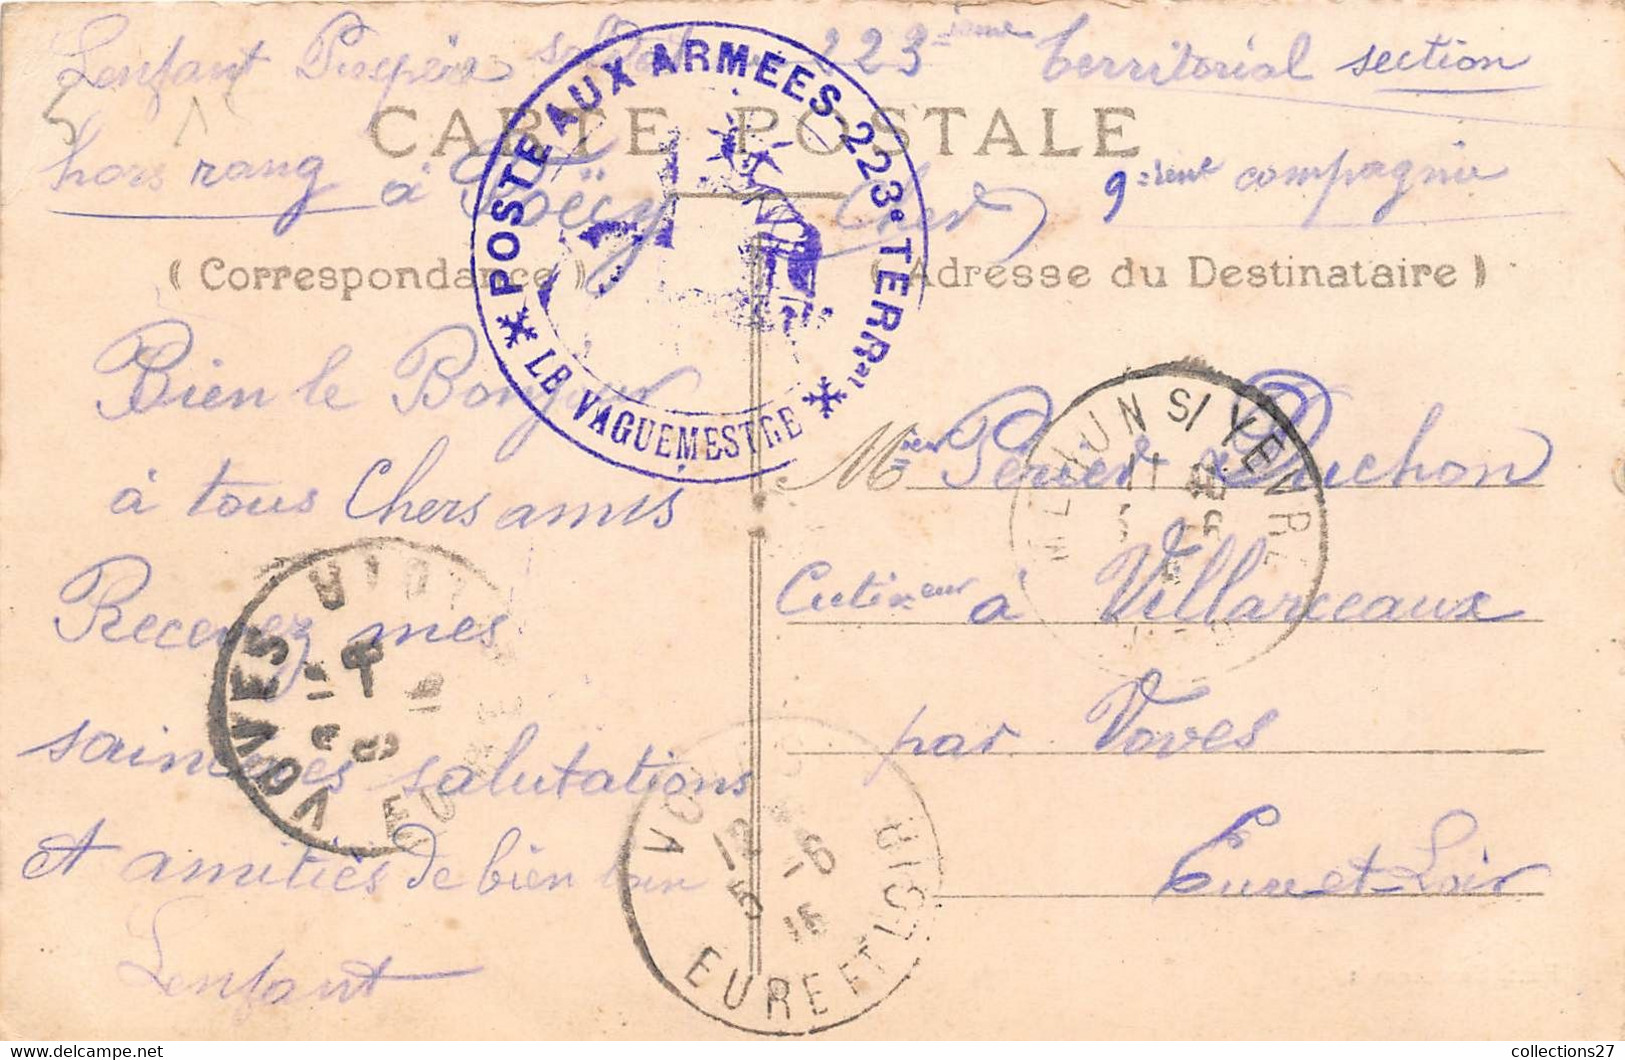 Lenfant soldat 223ième territorial section
hors rang à Foëcy Cher 9ième compagnie
CARTE POSTALE
( Correspondance ) ( Adresse du Destinataire )
* POSTE AUX ARMEES 223e TERRal *
LE VAGUEMESTRE
Bien le Bonjour
à tous Chers amis
Recevez mes
sincères salutations
et amitiés de bien loin
Lenfant
Perier Puchon
à Villarceaux
par Voves
Eure et Loir
MELUN S/YEVRE
11 40
5 -6
VOVES EURE
VOVES EURE ET LOIR
12
5 -6
15
collections27